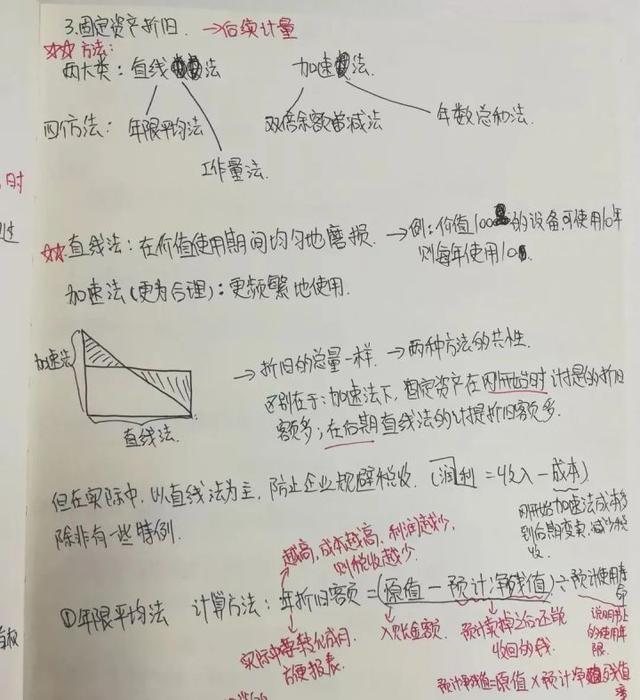 3.固定资产折旧. →后续计量
☆☆方法:
两大类: 直线法 加速法.
四个方法: 年限平均法 双倍余额递减法 年数总和法.
工作量法.
时
过
☆☆直线法: 在价值使用期间均匀地磨损. →例: 价值100的设备,可使用10年
则每年使用10.
加速法(更为合理): 更频繁地使用.
加速法
直线法.
→折旧的总量一样. →两种方法的共性.
区别在于: 加速法下, 固定资产在刚开始时计提的折旧
额多; 在后期直线法的计提折旧额多.
但在实际中, 以直线法为主, 防止企业规避税收. (润利=收入-成本)
除非有一些特例.
刚开始加速法成本多
到后期变卖,减少税
收.
越高,成本越高,利润越少,
则税收越少.
①年限平均法 计算方法: 年折旧额=(原值-预计净残值)÷预计使用寿
命
实际中要转化成月.
方便报表.
入账金额.
预计卖掉之后还能
收回的钱.
说明书上
的使用年
限.
预计净残值=原值×预计净残值
率